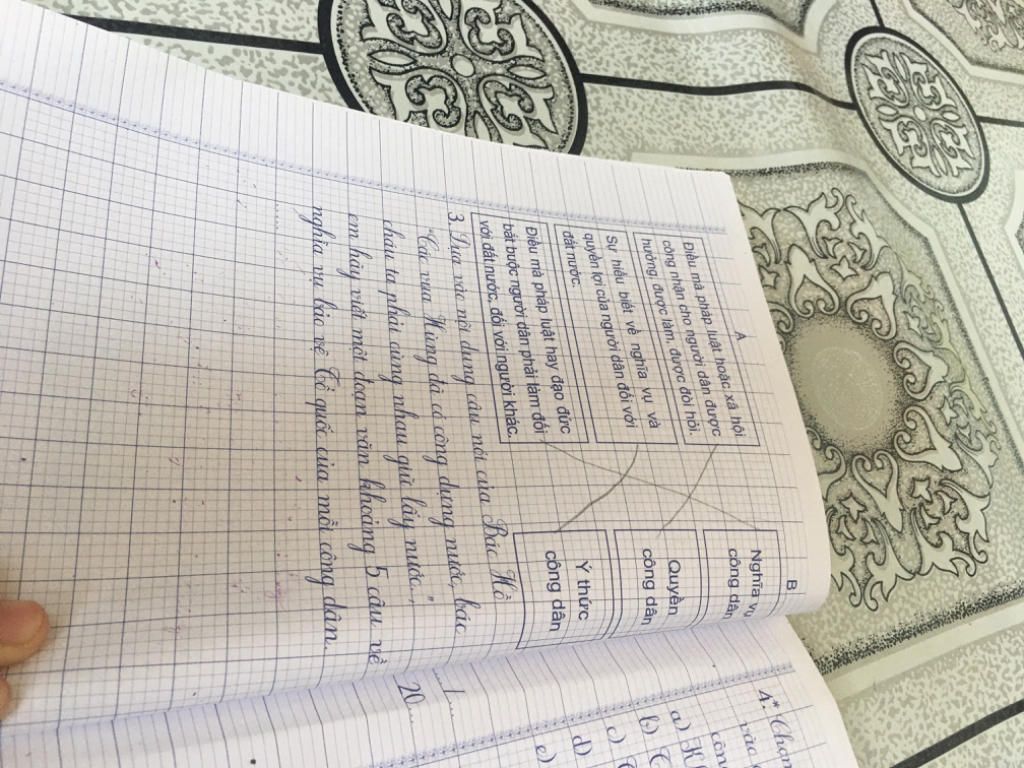 A
Điều mà pháp luật hoặc xã hội
công nhận cho người dân được
hưởng, được làm, được đòi hỏi.
Sự hiểu biết về nghĩa vụ và
quyền lợi của người dân đối với
đất nước.
Điều mà pháp luật hay đạo đức
bắt buộc người dân phải làm đối
với đất nước, đối với người khác.
B
Nghĩa vụ
công dân
Quyền
công dân
Ý thức
công dân
3. Dựa vào nội dung câu nói của Bác Hồ
"Các vua Hùng đã có công dựng nước, bác
cháu ta phải cùng nhau giữ lấy nước",
em hãy viết một đoạn văn khoảng 5 câu về
nghĩa vụ bảo vệ Tổ quốc của mỗi công dân.
20
4* Chọn
vào
a)
b)
c)
d)
e)